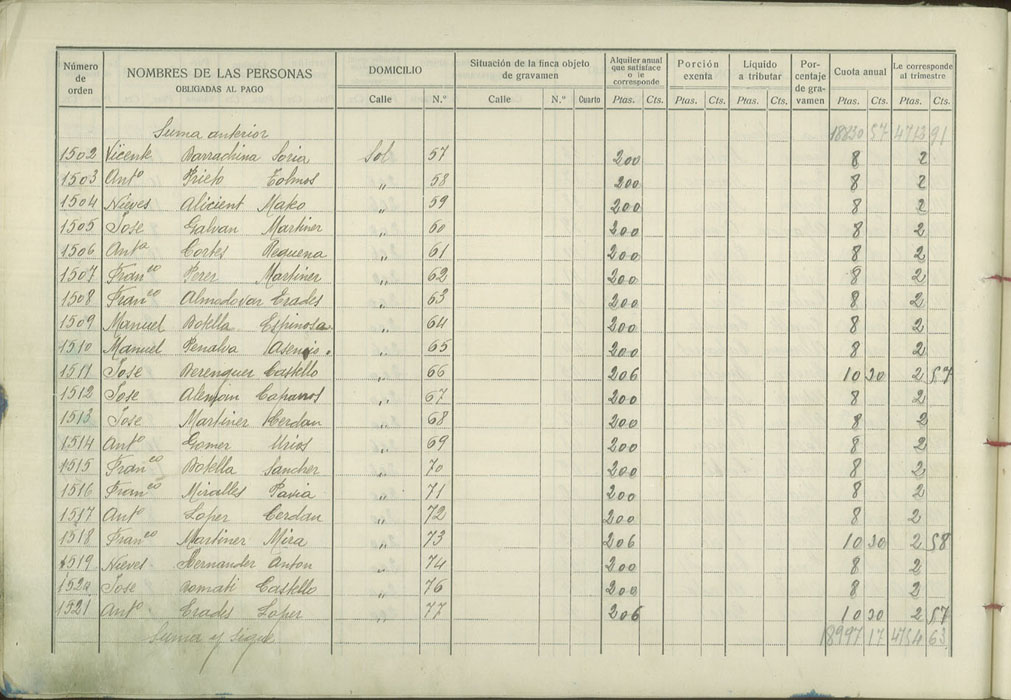 Número de orden NOMBRES DE LAS PERSONAS OBLIGADAS AL PAGO DOMICILIO Situación de la finca objeto de gravamen Alquiler anual que satisface o le corresponde Porción exenta Líquido a tributar Porcentaje de gravamen Cuota anual Le corresponde al trimestre
Calle N.º Calle N.º Cuarto Ptas. Cts. Ptas. Cts. Ptas. Cts. Ptas. Cts. Ptas. Cts.
Suma anterior 18830 57 4713 91
1502 Vicente Barrachina Soria Sol 57 200 8 2
1503 Antº Prieto 〃 58 200 8 2
1504 Nieves Alicient 〃 59 200 8 2
1505 Jose Galvan Martinez 〃 60 200 8 2
1506 Antª Cortes Requena 〃 61 200 8 2
1507 Franco Perez Martinez 〃 62 200 8 2
1508 Franco Almodovar Erades 〃 63 200 8 2
1509 Manuel Botella Espinosa 〃 64 200 8 2
1510 Manuel Penalva Asencio 〃 65 200 8 2
1511 Jose Berenguer Castello 〃 66 206 10 30 2 57
1512 Jose Caparros 〃 67 200 8 2
1513 Jose Martinez Cerdan 〃 68 200 8 2
1514 Antº Gomez Urios 〃 69 200 8 2
1515 Franco Botella Sanchez 〃 70 200 8 2
1516 Franco Miralles Pavia 〃 71 200 8 2
1517 Antº Lopez Cerdan 〃 72 200 8 2
1518 Franco Martinez Mira 〃 73 206 10 30 2 58
1519 Nieves Hernandez Anton 〃 74 200 8 2
1520 Jose Castello 〃 76 200 8 2
1521 Antº Erades Lopez 〃 77 206 10 30 2 57
Suma y sigue 18997 17 4754 63